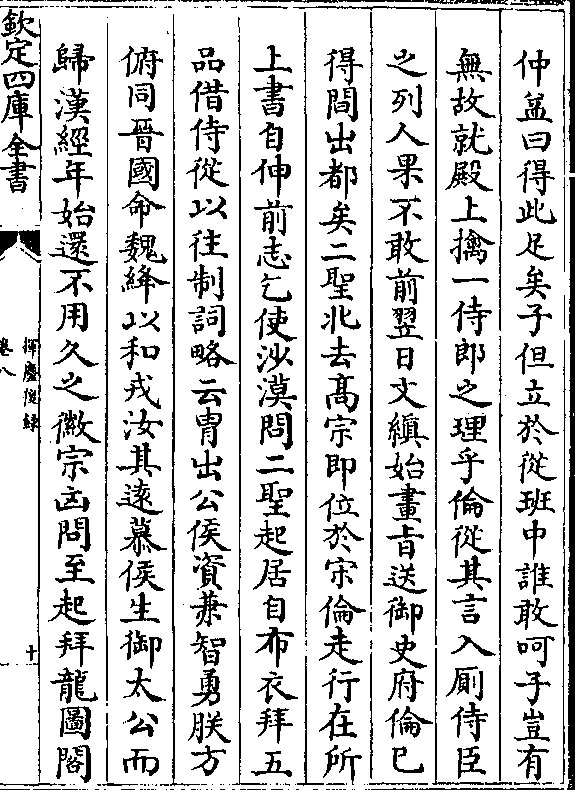 仲荀曰得此足矣子但立於從班中誰敢呵子豈有
無故就殿上擒一侍郎之理乎倫從其言入厠侍臣
之列人果不敢前翌日文縝始畫旨送御史府倫已
得間出都矣二聖北去髙宗即位於宋倫走行在所
上書自伸前志乞使沙漠問二聖起居自布衣拜五
品借侍從以往制詞略云胄出公侯資兼智勇朕方
俯同晉國命魏絳以和戎汝其逺慕侯生御太公而
歸漢經年始還不用久之徽宗凶問至起拜龍圖閣
欽定四庫全書
揮麈後録
卷八
十